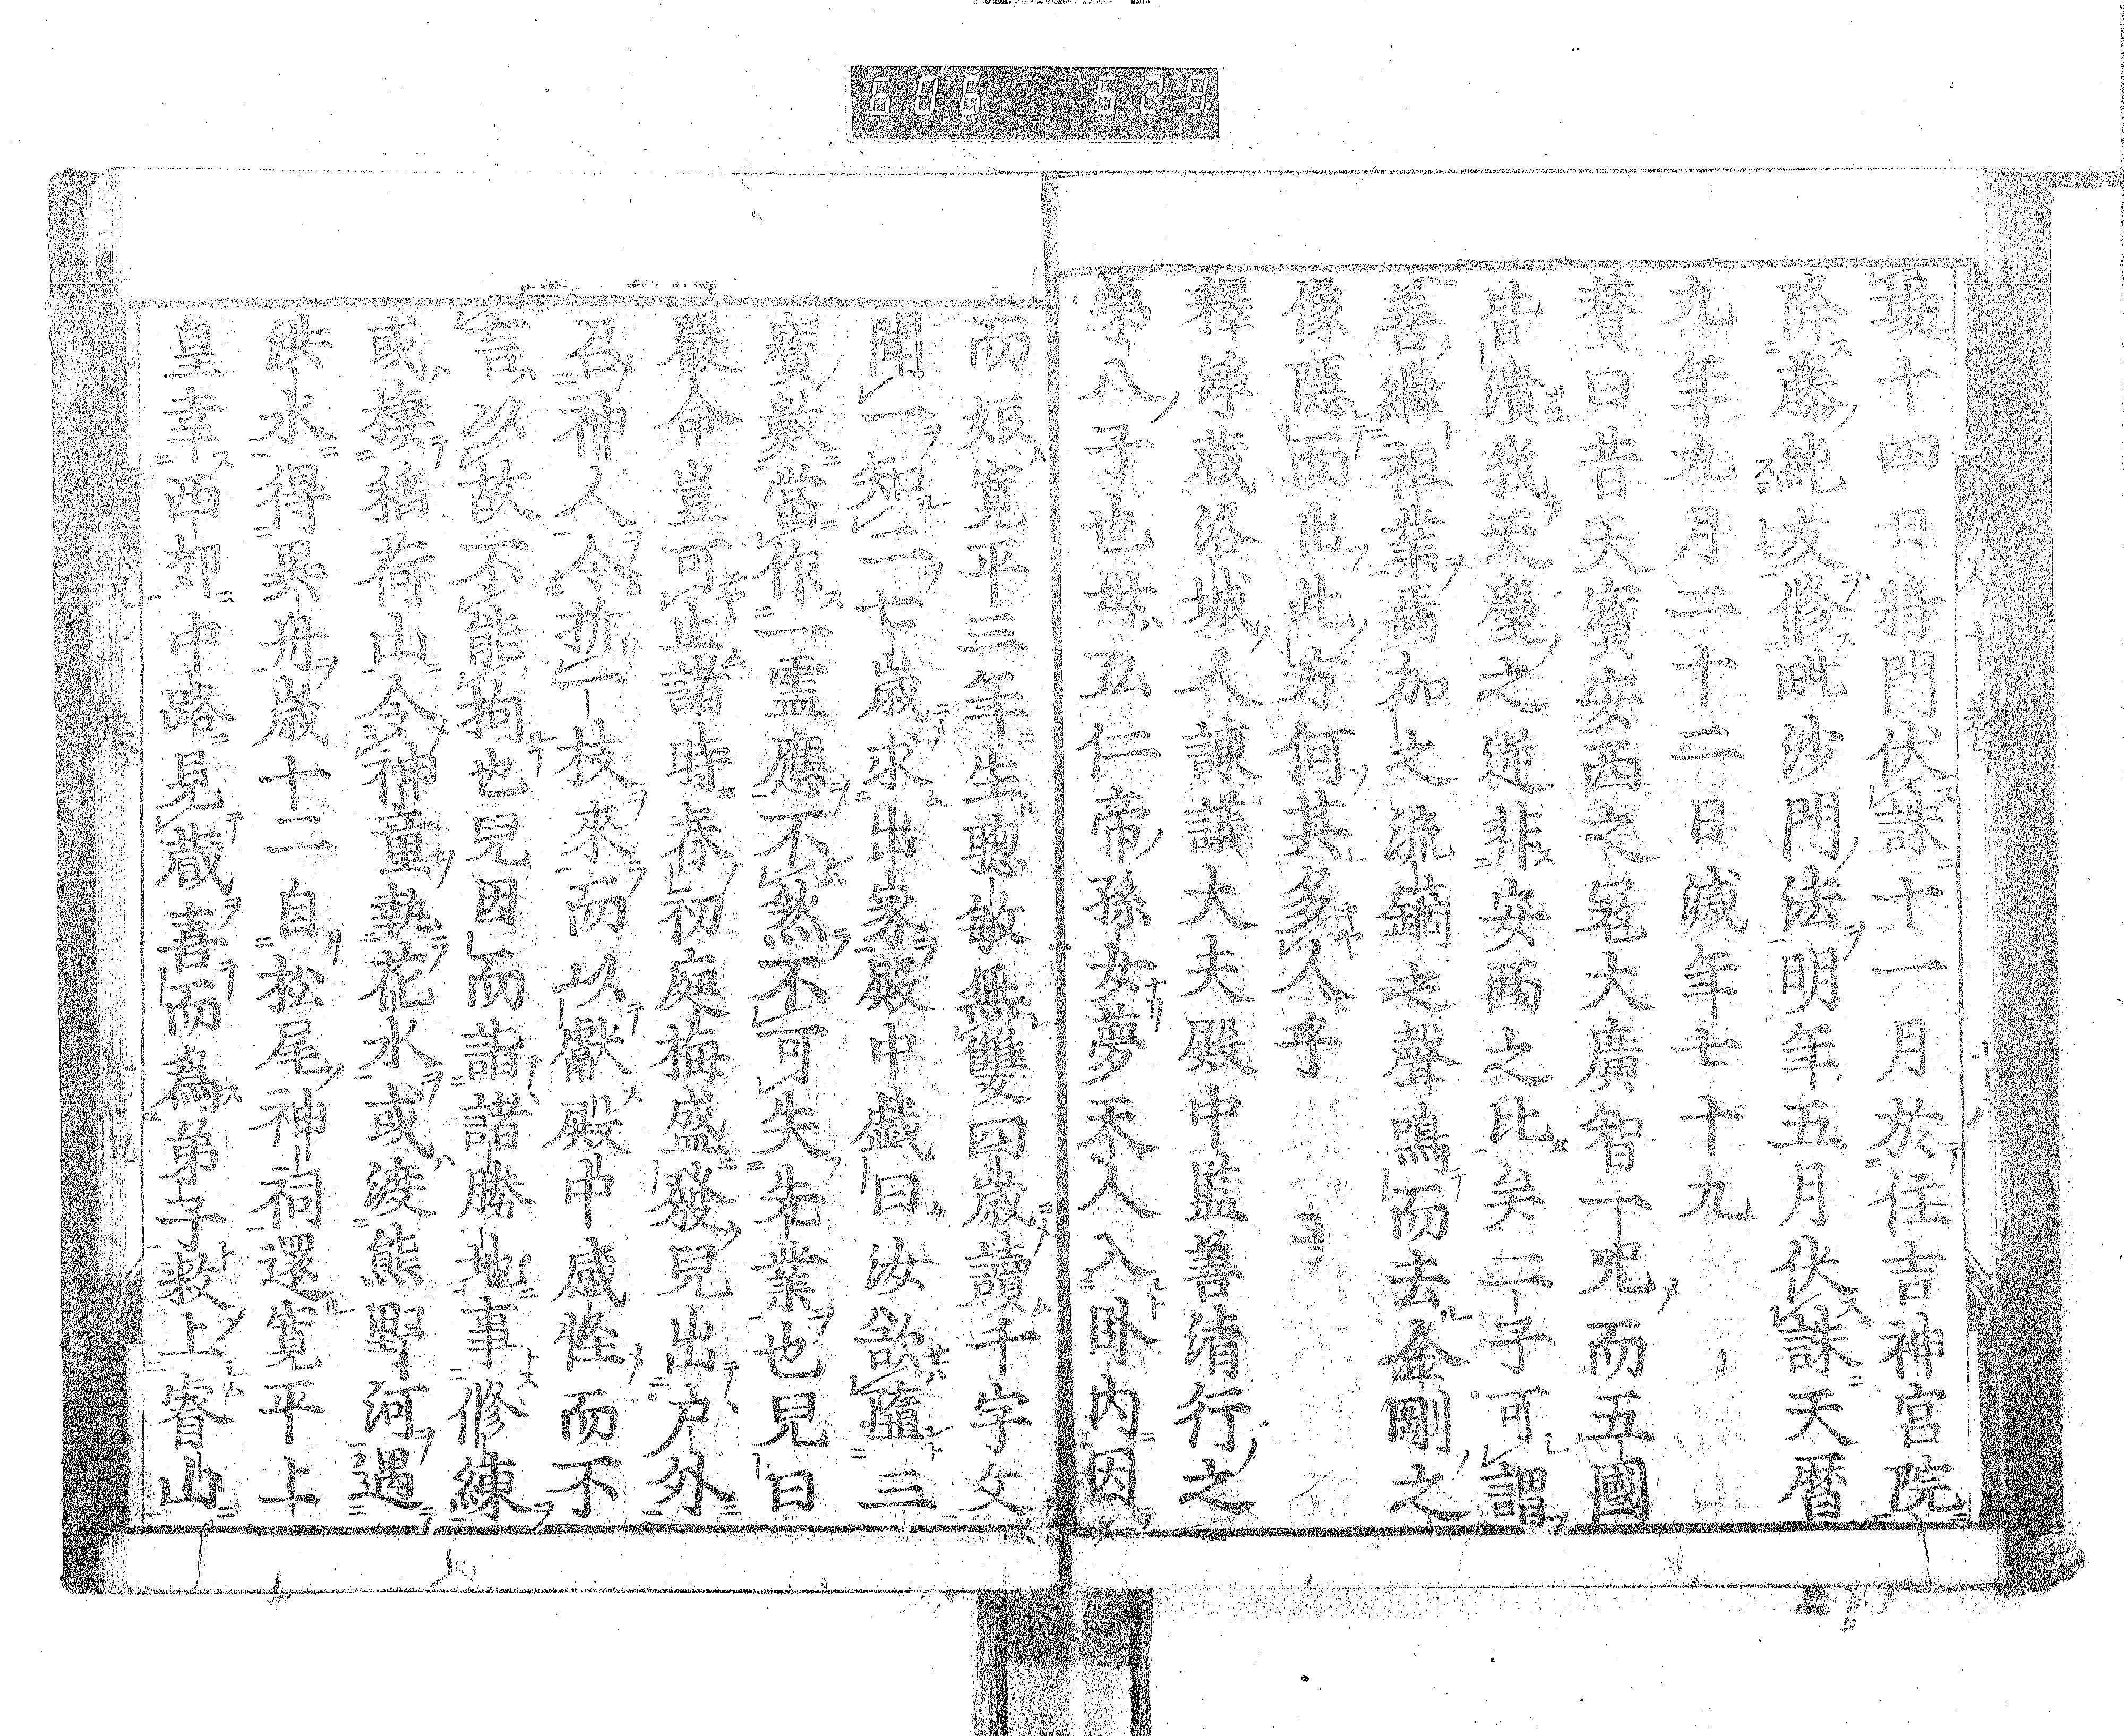 606 629
壇十四日将門伏誅十一月於住吉神宮院
降藤純友修毗沙門法明年五月伏誅天暦
九年九月二十二日滅年七十九
賛曰昔天寶安西之冦大廣智一咒而五國
皆潰我天慶之逆非安西之比矣二子可謂
善繼祖業焉加之流鏑之聲鳴而去金剛之
像隱而出此方何其多人乎
釋淨藏洛城人諫議大夫殿中監善清行之
第八子也母弘仁帝孫女夢天人入卧内因
而娠寛平三年生聰敏無雙四歳讀千字文
聞一知二七歳求出家殿中戯曰汝欲隨三
寳數當作一靈應不然不可失先業也兒曰
嚴命豈可止諸時春初庭梅盛發兒出戸外
召神人令折一枝來而以獻殿中感恠而不
言以故不能拘也兒因而詣諸勝地事修練
或棲稻荷山令神童執花水或渡熊野河遇
洪水得異舟歳十二自松尾神祠還寛平上
皇幸西郊中路見藏喜而為弟子敕上睿山